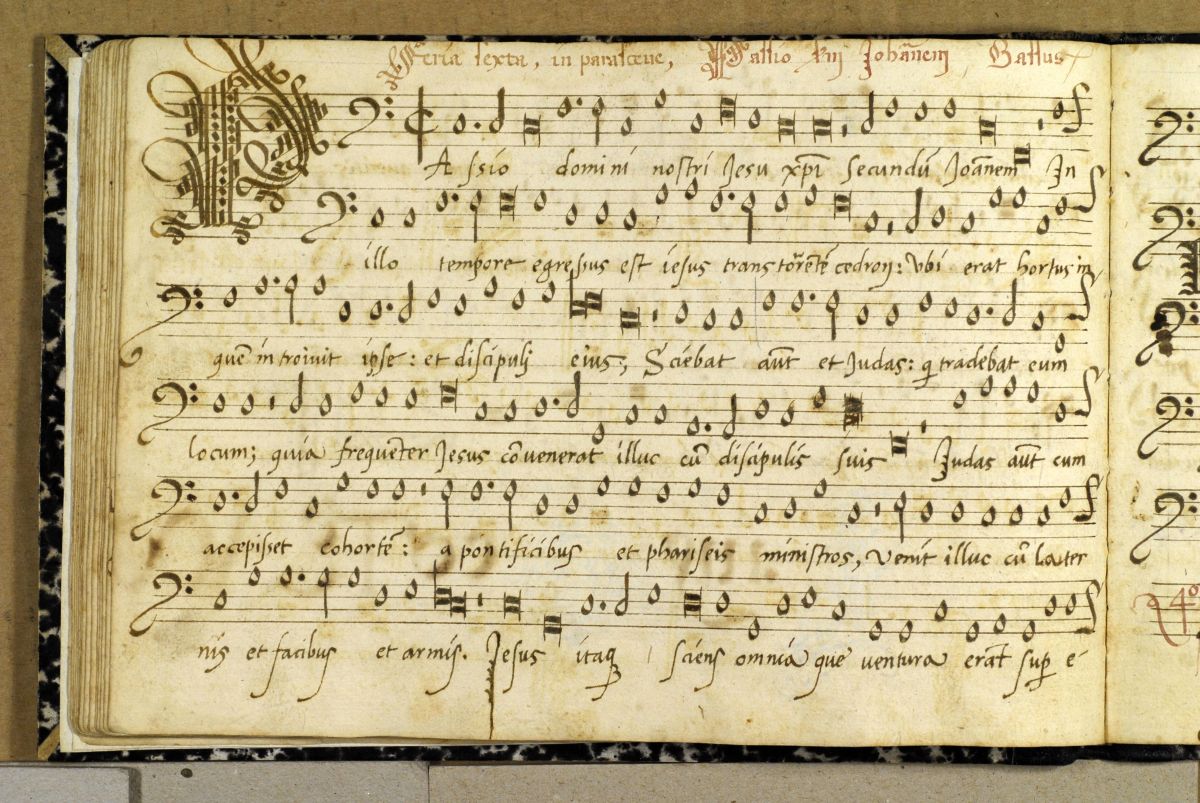 Feria sexta, in parasceue, Passio dnj Johānem Gallus
PAssio domini nostri Jesu xpī secundū Joānem In
illo tempore egressus est iesus trans torētē cedron: Vbi erat hortus in
quē introiuit ipse: et discipulj eius; Sciebat aūt et Judas: q tradebat eum
locum; quia frequēter Jesus cōvenerat illuc cū discipulis suis Judas aūt cum
accepisset cohortē: a pontificibus et phariseis ministros, venit illuc cū later
nis et facibus et armis. Jesus itaq sciens omnia que ventura erāt sup e
4º